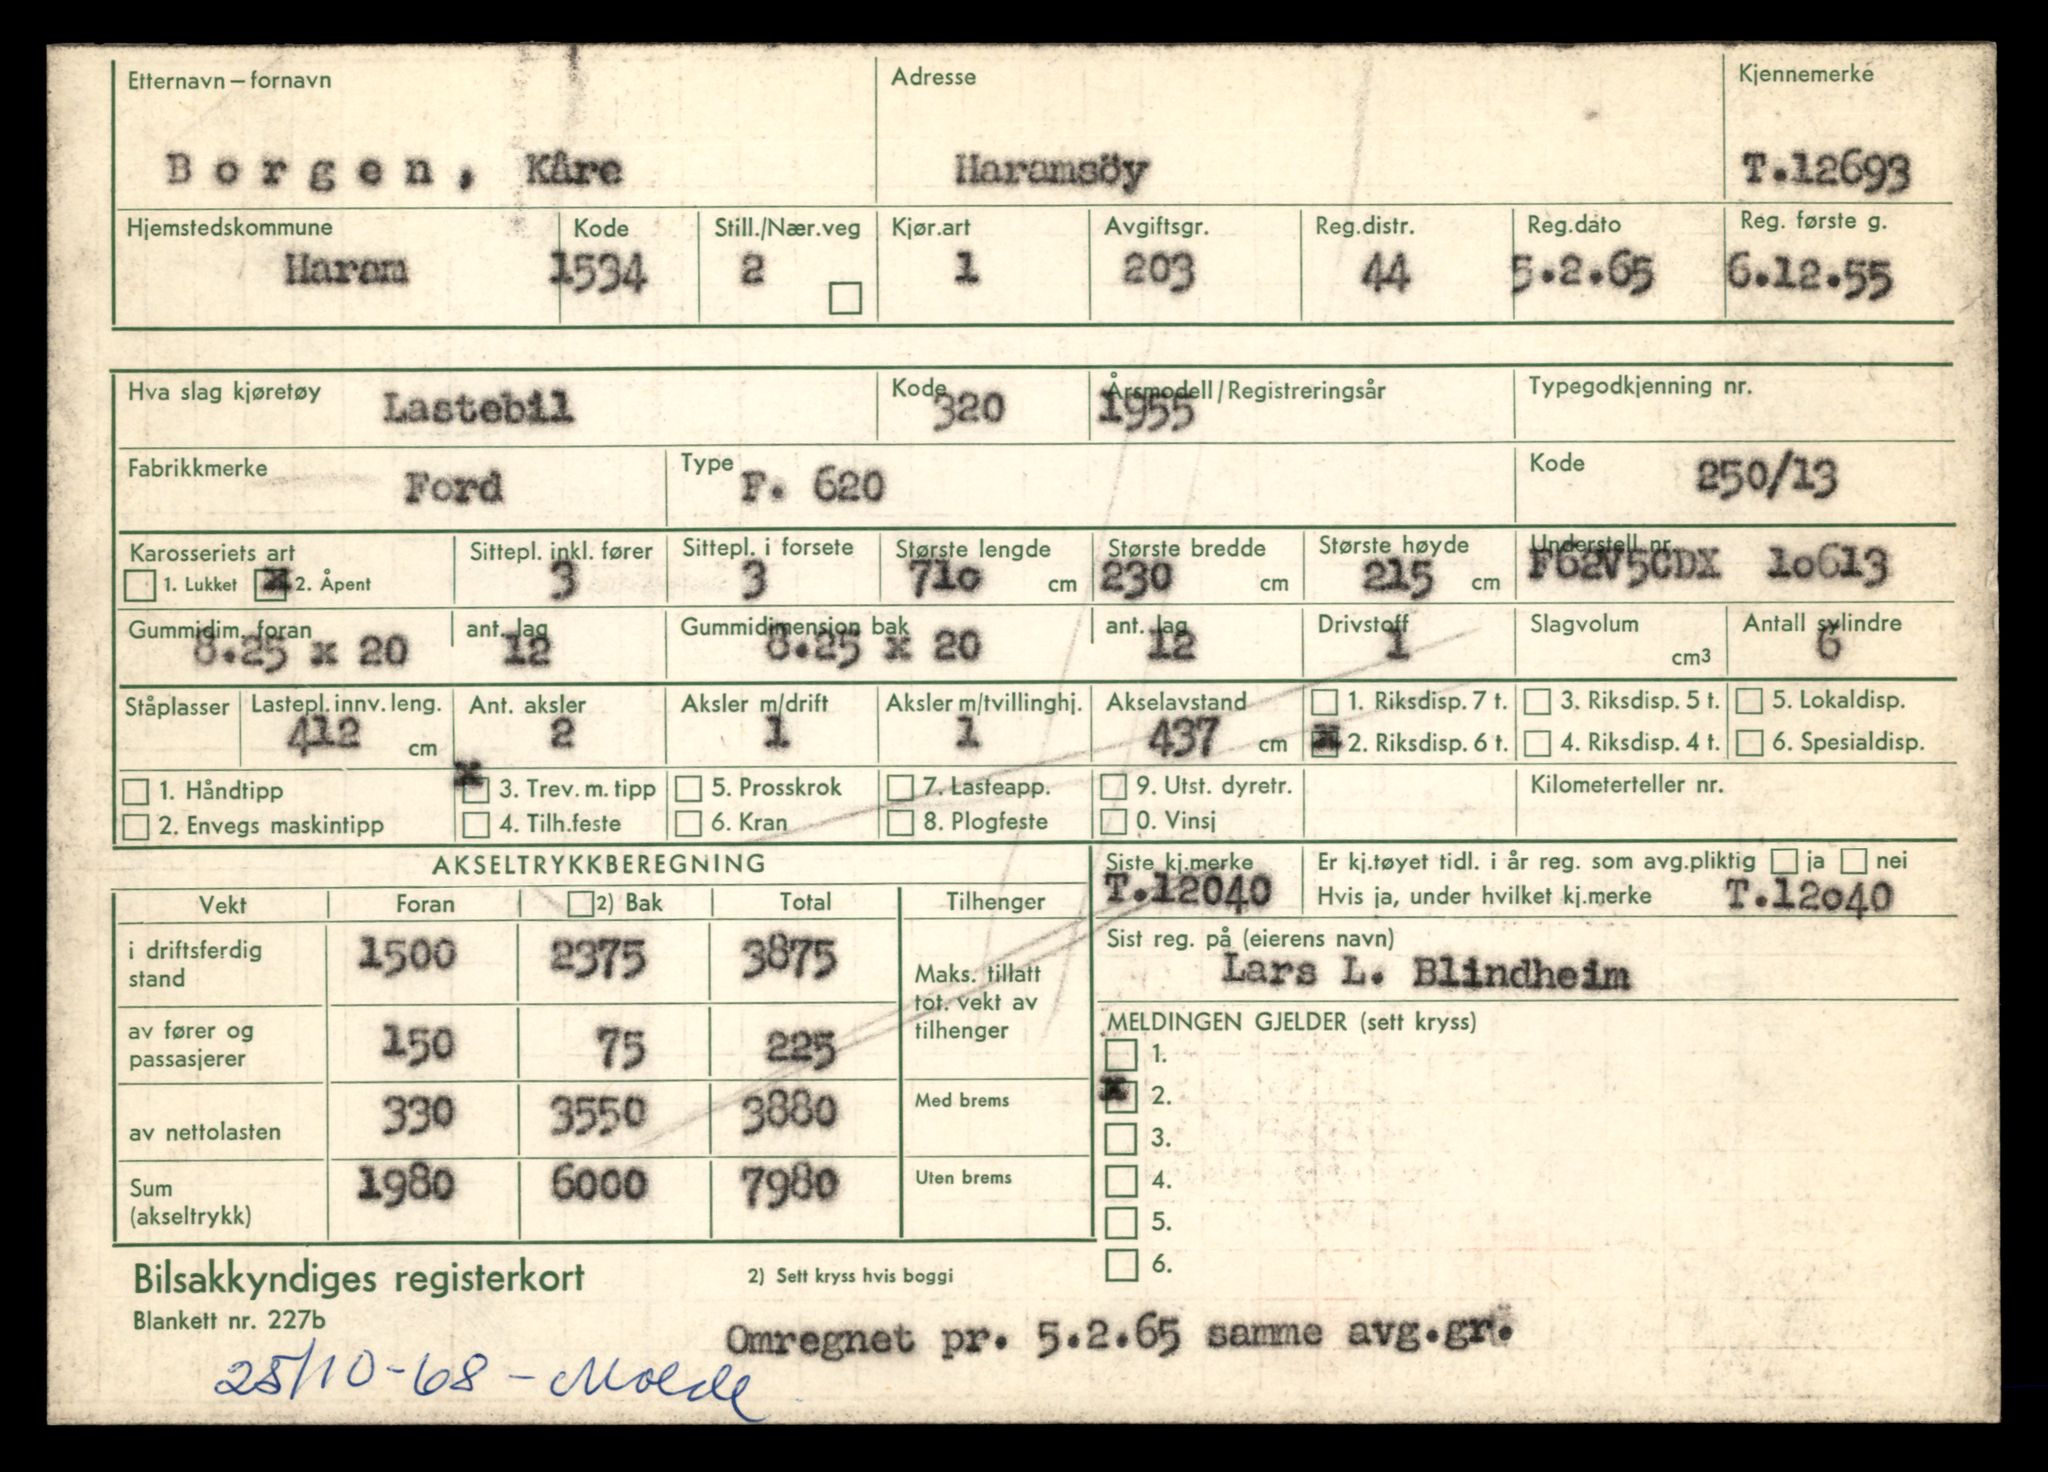 Etternavn – fornavn Adresse Kjennemerke
Borgen, Kåre Haramsöy T.12693
Hjemstedskommune Kode Still./Nær.veg Kjør.art Avgiftsgr. Reg.distr. Reg.dato Reg. første g.
Haram 1534 2 1 203 44 5.2.65 6.12.55
Hva slag kjøretøy Kode Årsmodell/Registreringsår Typegodkjenning nr.
Lastebil 320 1955
Fabrikkmerke Type Kode
Ford F. 620 250/13
Karosseriets art Sittepl. inkl. fører Sittepl. i forsete Største lengde Største bredde Største høyde Understell nr.
1. Lukket x 2. Åpent 3 3 710 cm 230 cm 215 cm F62V5CDX 10613
Gummidim. foran ant. lag Gummidimensjon bak ant. lag Drivstoff Slagvolum Antall sylindre
8.25 x 20 12 8.25 x 20 12 1 cm3 6
Ståplasser Lastepl. innv. leng. Ant. aksler Aksler m/drift Aksler m/tvillinghj. Akselavstand 1. Riksdisp. 7 t. 3. Riksdisp. 5 t. 5. Lokaldisp.
412 cm 2 1 1 437 cm x 2. Riksdisp. 6 t. 4. Riksdisp. 4 t. 6. Spesialdisp.
1. Håndtipp x 3. Trev. m. tipp 5. Prosskrok 7. Lasteapp. 9. Utst. dyretr. Kilometerteller nr.
2. Envegs maskintipp 4. Tilh.feste 6. Kran 8. Plogfeste 0. Vinsj
AKSELTRYKKBEREGNING
Vekt Foran 2) Bak Total Tilhenger
i driftsferdig stand 1500 2375 3875
Maks. tillatt tot. vekt av tilhenger
av fører og passasjerer 150 75 225
av nettolasten 330 3550 3880 Med brems
Sum (akseltrykk) 1980 6000 7980 Uten brems
Siste kj.merke Er kj.tøyet tidl. i år reg. som avg.pliktig ja nei
T.12040 Hvis ja, under hvilket kj.merke T.12040
Sist reg. på (eierens navn)
Lars L. Blindheim
MELDINGEN GJELDER (sett kryss)
1.
x 2.
3.
4.
5.
6.
Bilsakkyndiges registerkort 2) Sett kryss hvis boggi
Blankett nr. 227b
Omregnet pr. 5.2.65 samme avg.gr.
25/10-68 – Molde